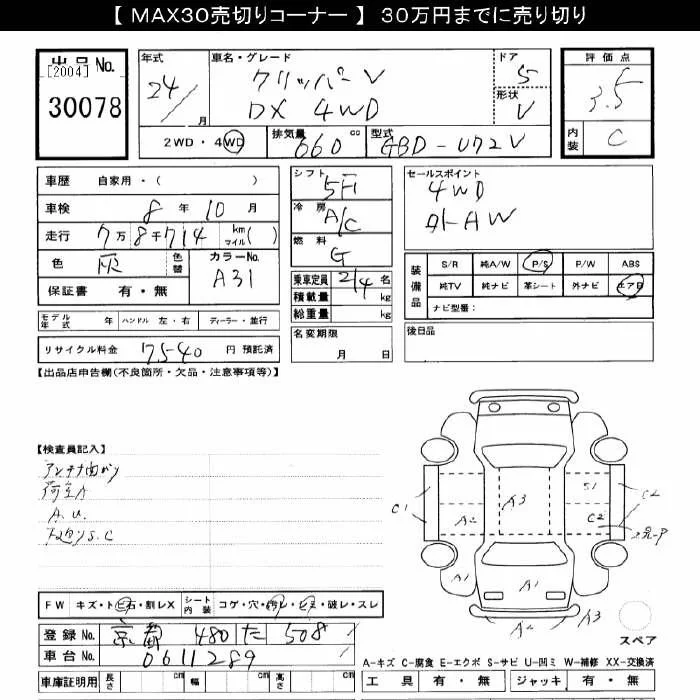 【 MAX30売切りコーナー 】 30万円までに売り切り
出品No.
[2004]
30078
年式
24/
月
車名・グレード
クリッパーV
DX 4WD
ドア
5
形状
V
評価点
3.5
内装
C
2WD・4WD
排気量
660 cc
型式
GBD-U72V
車歴 自家用・( )
車検 8年 10月
走行 7万8千714 km マイル( )
色 灰 色替
カラーNo.
A31
保証書 有・無
シフト
5F
冷房
A/C
燃料
G
乗車定員 2/4 名
積載量 kg
総重量 kg
セールスポイント
4WD
外AW
装備品
S/R 純A/W P/S P/W ABS
純TV 純ナビ 革シート 外ナビ エアB
ナビ型番:
モデル年式 年 ハンドル 左・右 ディーラー・並行
名変期限
月 日
後日品
リサイクル料金 7540 円 預託済
【出品店申告欄(不良箇所・欠品・注意事項等)】
【検査員記入】
アンテナ曲がり
A.U.
下廻りS.C
C1
A2
A3
S1
C2
C2
A1
A1
A2
A3
スペア
FW キズ・トビ石・割レX シート内装 コゲ・穴・汚レ・シミ・破レ・スレ
登録No. 京都 480 た 508
車台No. 0611289
車庫証明用 長さ cm 幅 cm 高さ cm
A-キズ C-腐食 E-エクボ S-サビ U-凹ミ W-補修 XX-交換済
工具 有・無 ジャッキ 有・無